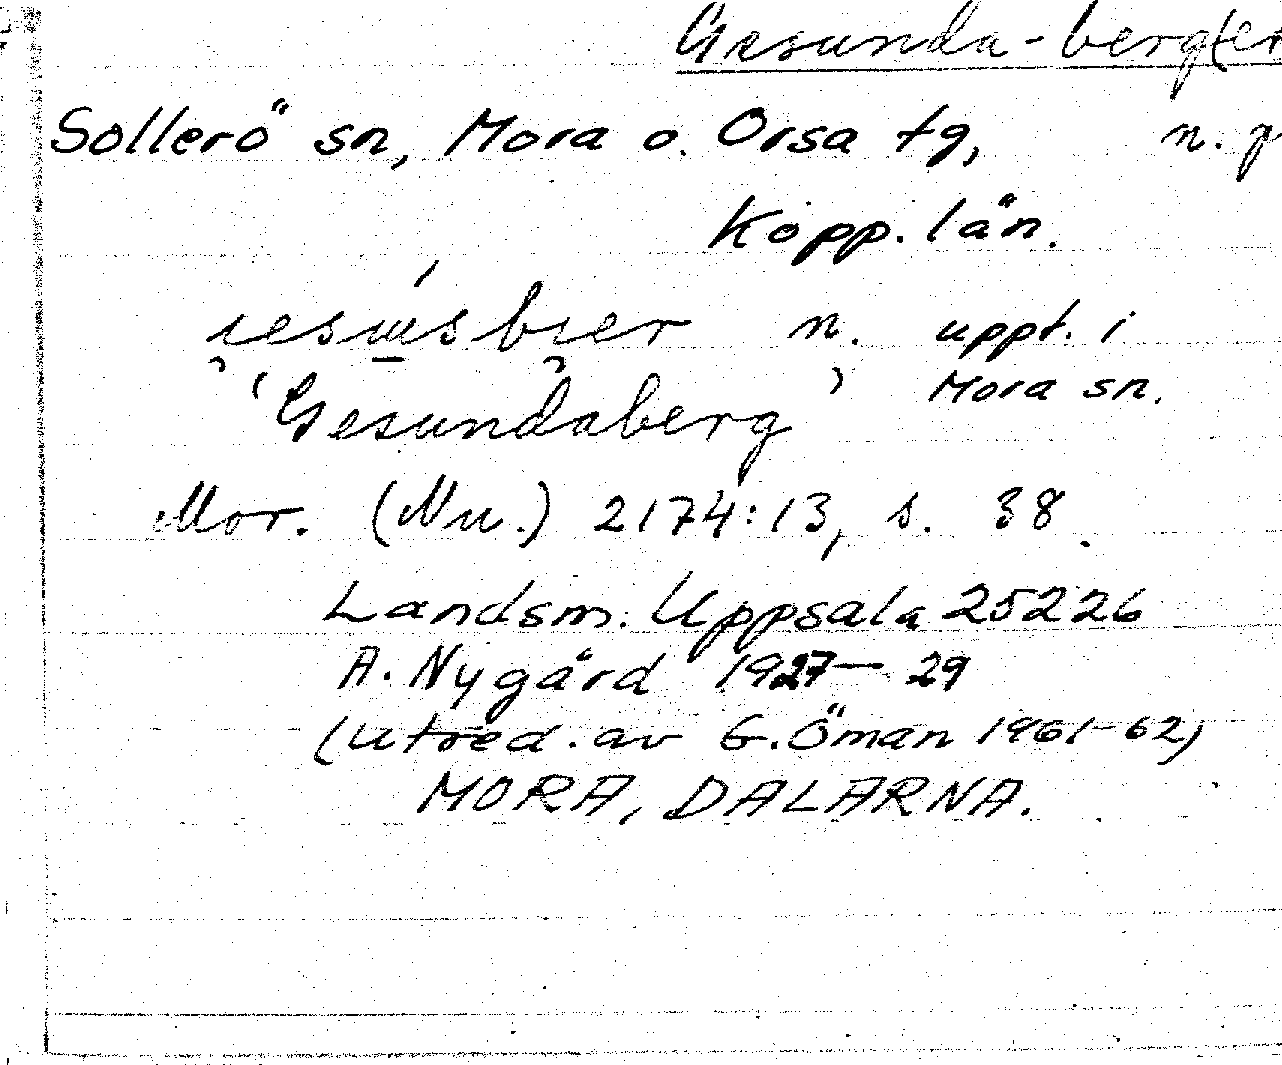 Gesunda-berg(er
Sollerö sn, Mora o. Orsa tg, n. p
Kopp. län.
n. uppt. i
'Gesundaberg' Mora sn.
Mor. (Nu.) 2174:13, s. 38.
Landsm. Uppsala 25226
A. Nygård 1927-29
(utred. av G. Öman 1961-62)
MORA, DALARNA.